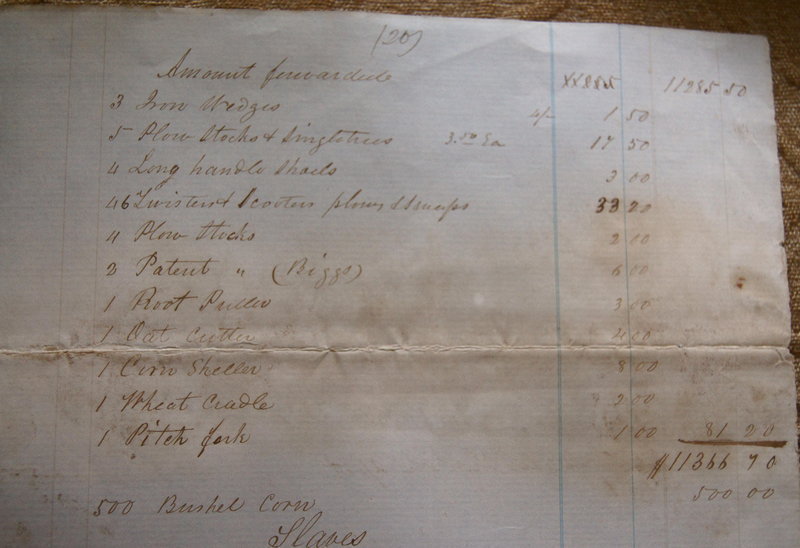 (20)
Amount forwarded 11285 50
3 Iron Wedges 4/- 1 50
5 Plow Stocks & Singletrees 3.50 Ea 17 50
4 Long handle Shovls 3 00
46 Twisters & Scooters plows & Sweeps 33 20
4 Plow Stocks 2 00
2 Patent " (Biggs) 6 00
1 Root Puller 3 00
1 Oat Cutter 4 00
1 Corn Sheller 8 00
1 Wheat Cradle 2 00
1 Pitch fork 1 00 81 20
$11366 70
500 Bushel Corn 500 00
Slaves